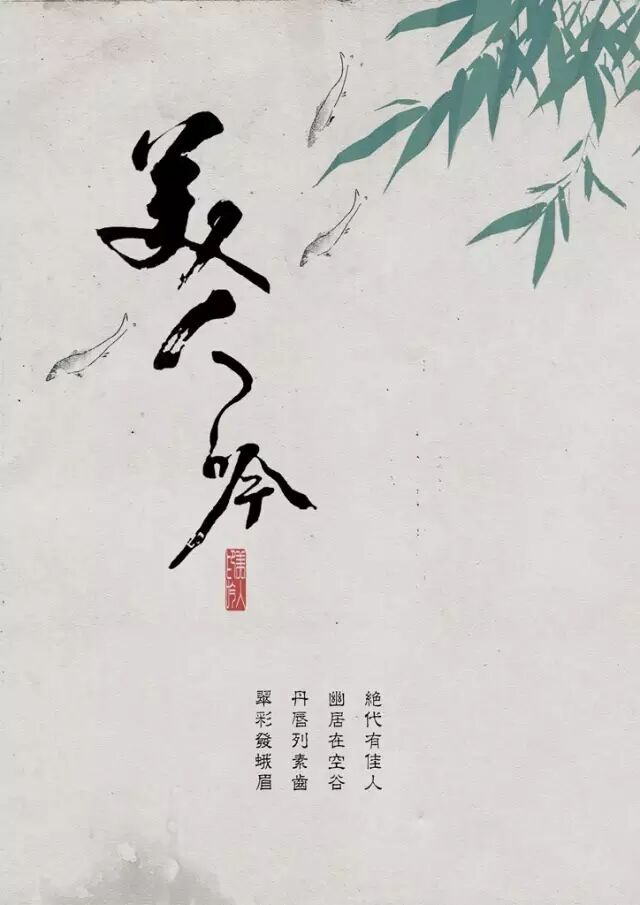 美人吟
美人吟印
絕代有佳人
幽居在空谷
丹唇列素齒
翠彩發蛾眉